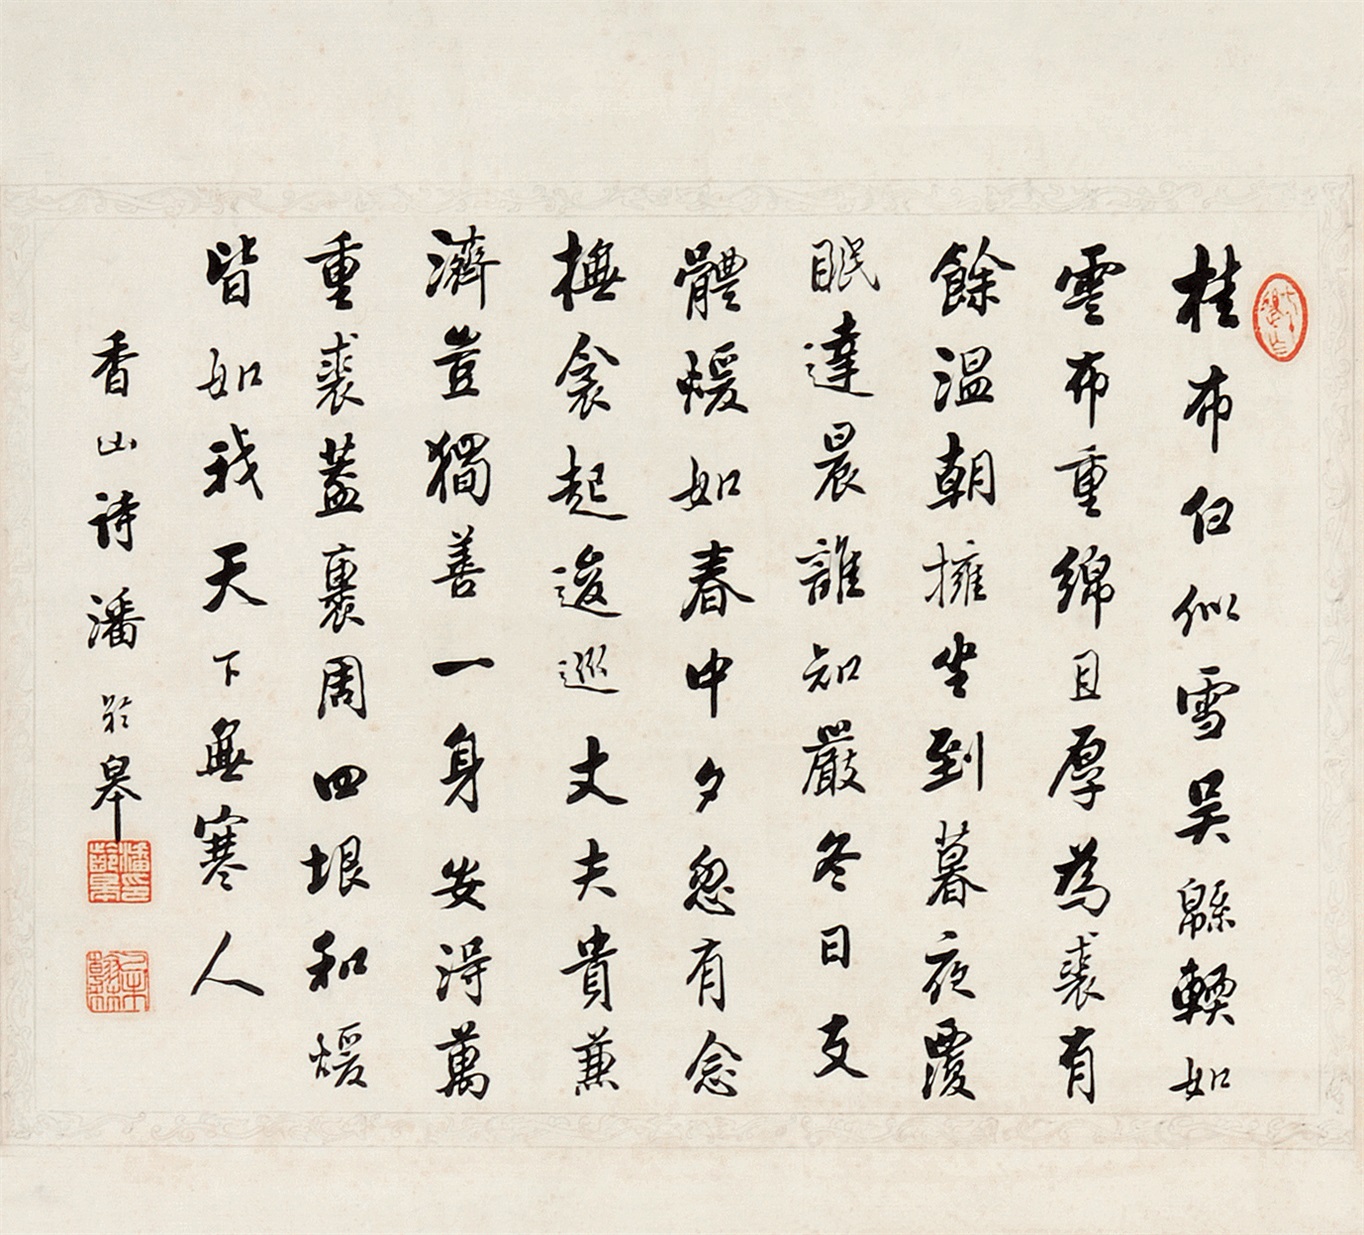 桂布白似雪吳緜輭如
雲布重綿且厚為裘有
餘温朝擁坐到暮夜覆
眠達晨誰知嚴冬日支
體煖如春中夕忽有念
撫衾起逡巡丈夫貴兼
濟豈獨善一身安得萬
重裘蓋裹周四垠和煖
皆如我天下無寒人
香山詩潘齡皋
潘印齡皋